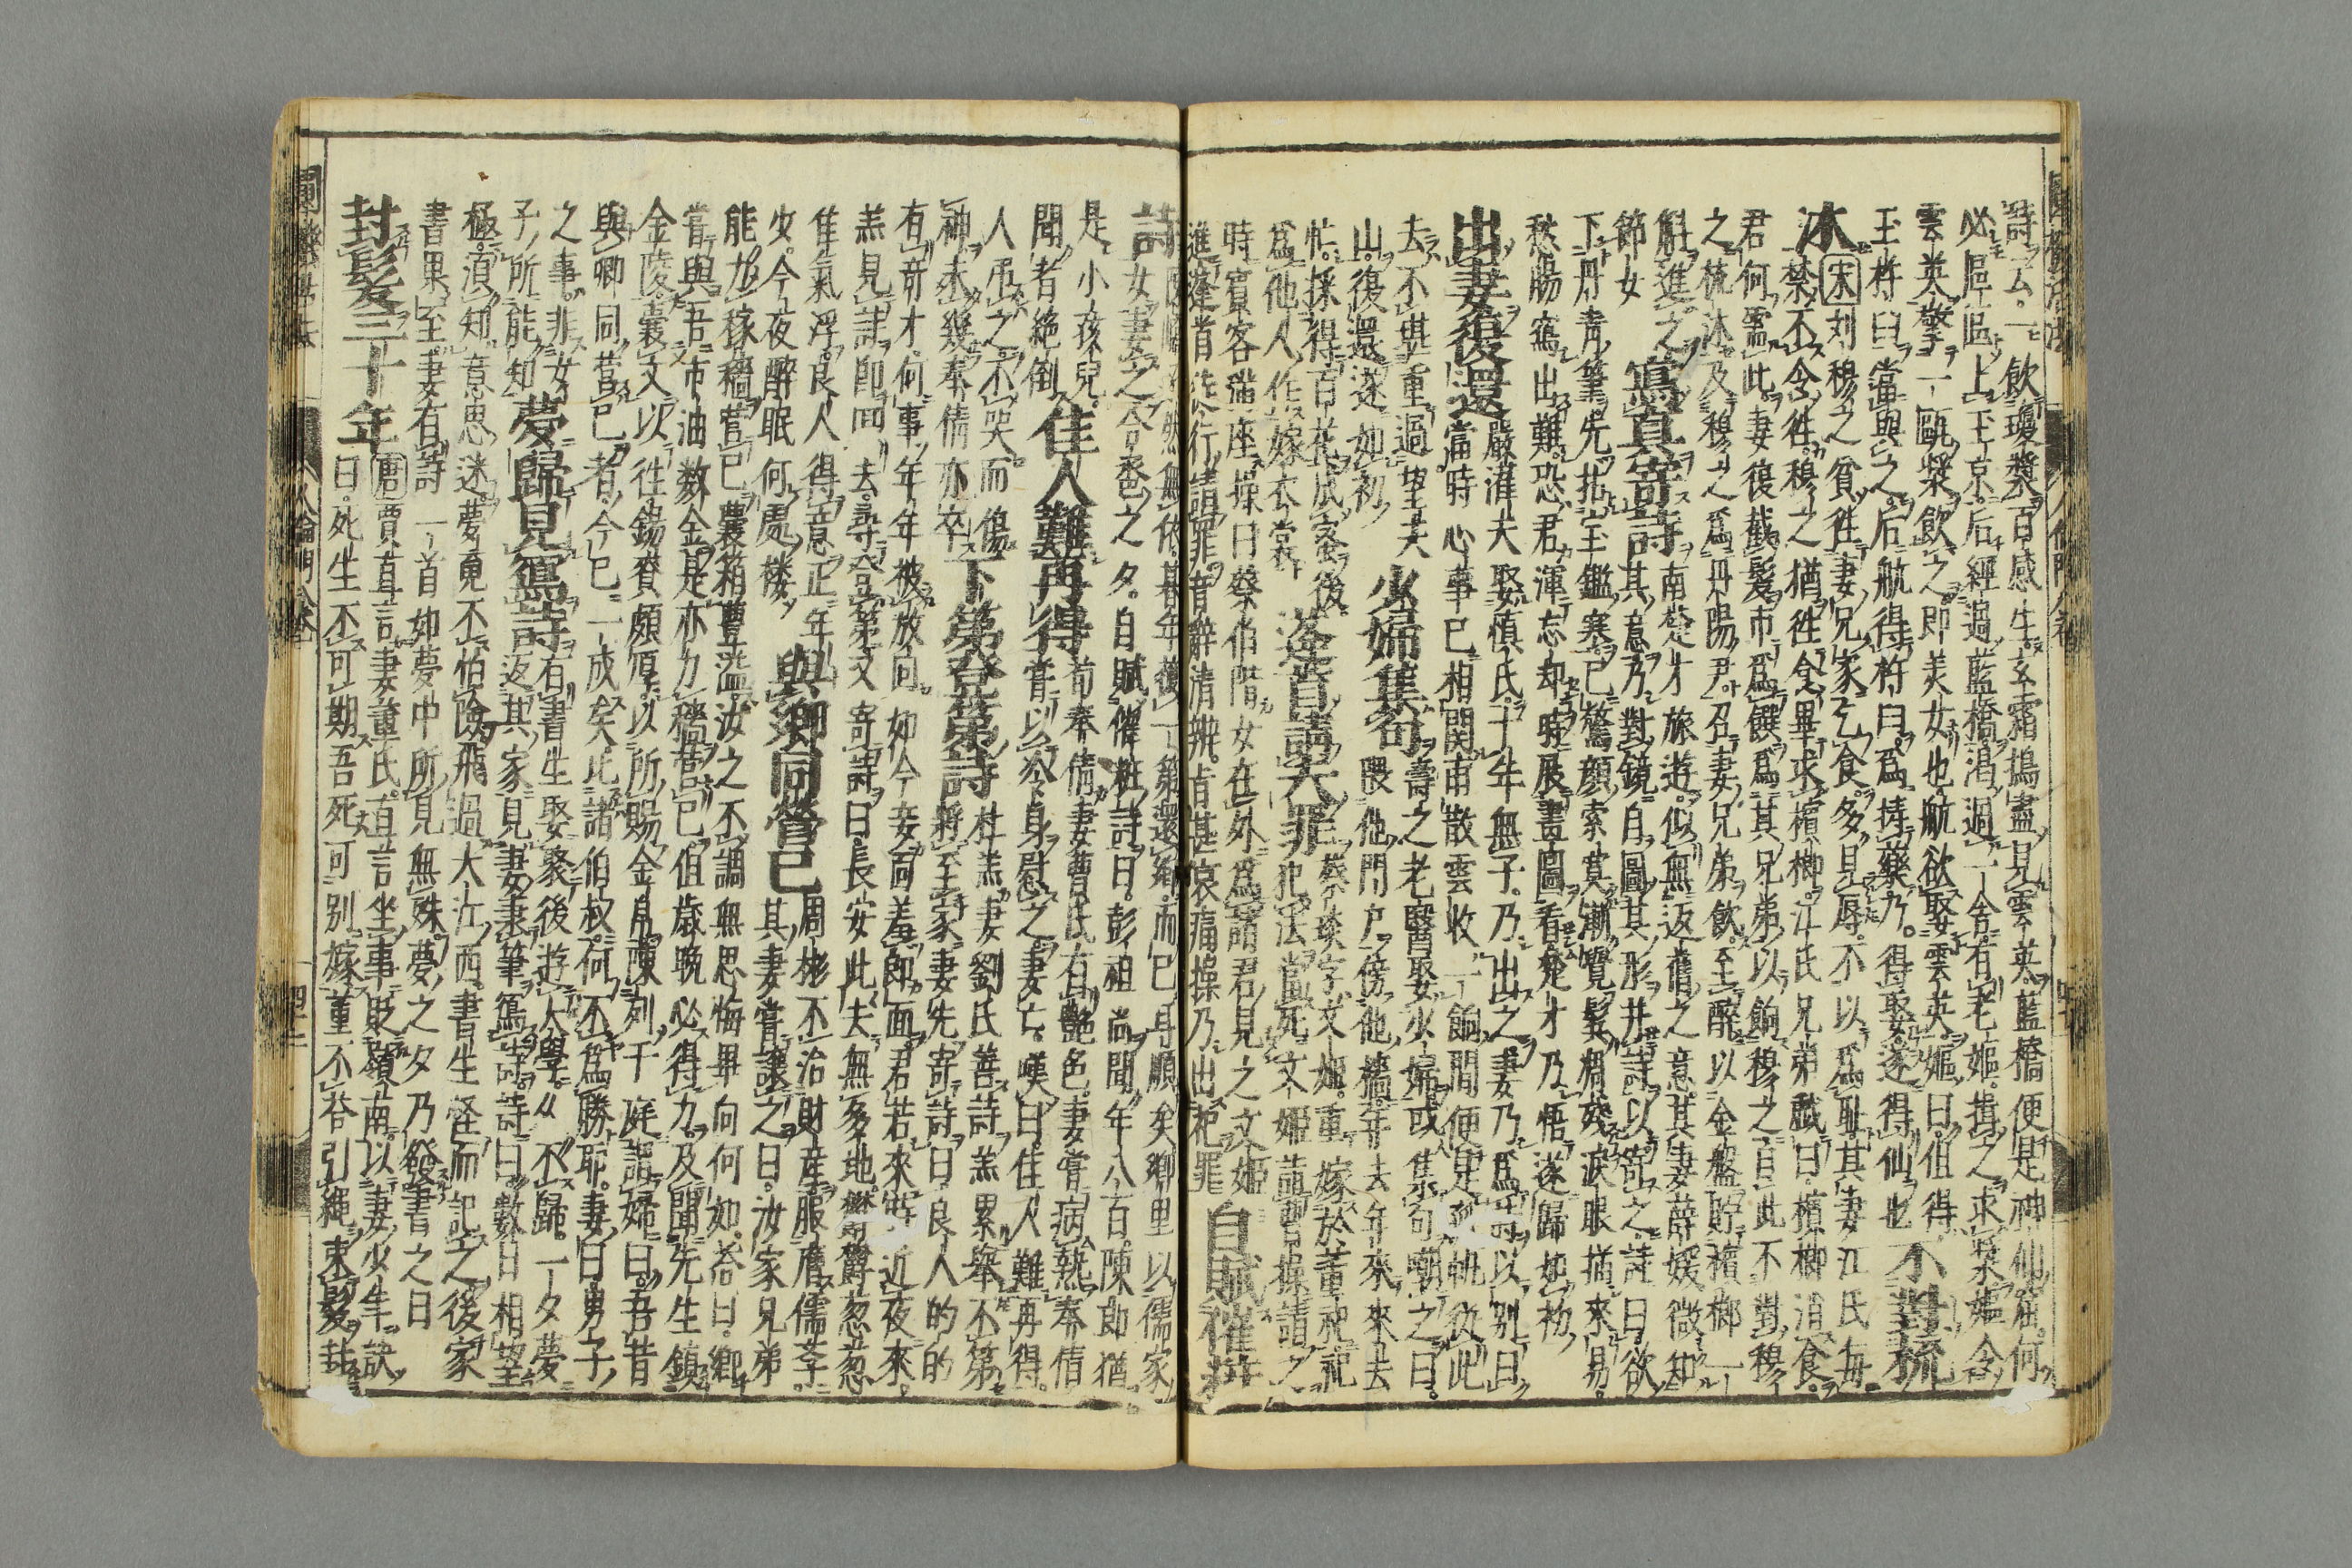 詩云。一飲瓊漿百感生。玄霜搗盡見雲英。藍橋便是神仙窟。何
必區區上玉京。后經過藍橋渇過一舍有老嫗。揖之求漿。嫗令
雲英擎一甌漿飲之。即美女也。航欲娶雲英。嫗曰。但得
玉杵臼。當與之。后航得杵臼。爲搗藥。乃得娶。遂得仙也 不對梳
沐 宋 刘穆之貧。徃妻兄家乞食。多見辱。不以爲恥。其妻江氏每
禁不令徃。穆之猶徃。食畢求檳榔。江氏兄弟戲曰。檳榔消食。
君何需此。妻復截髮市爲饌。爲其兄弟以餉穆之。自此不對穆
之梳沐。及穆之爲丹陽尹。召妻兄弟飲。至醉以金盤貯檳榔一
斛進之 寫真寄詩 南楚才旅遊。似無返舊之意。其妻薛媛微知
其意。乃對鏡自圖其形并詩以寄之。詩曰。欲
下丹青筆。先拈宝鑑寒。已驚顔索莫。漸覺髮稠殘。淚眼描來易。
愁腸寫出難。恐君渾忘却。時展畫圖看。楚才乃悟。遂歸如初
節女
出妻復還 嚴潅夫娶慎氏。十年無子。乃出之。妻乃爲詩以別曰。
當時心事已相関。雨散雲收一餉間。便是孤帆從此
去。不堪重過望夫
山。復還遂如初 少婦集句 壽之老醫娶少婦。或集句嘲之曰。
偎他門戸傍他牆。年去年來來去
忙。採得百花成蜜後
爲他人作嫁衣裳 蓬首請夫罪 蔡琰字文姬。重嫁於董祀。祀
犯法當死。文姬詣曹操請之
時賓客滿座。操曰蔡伯喈女在外。爲諸君見之。文姬
進。蓬首徒行。請罪。音辭清辨。旨甚哀痛。操乃出祀罪 自賦催粧
詩 無依。朞年後一第還鄉而已身順矣。卿里以儒家
女妻之。合巹之夕。自賦催粧詩曰。彭祖尚聞年八百。陳郎猶
是小孩兒。
聞者絶倒 佳人難再得 荀奉倩妻曹氏有艷色。妻嘗病熱。奉倩
嘗以冷身慰之。妻亡。嘆曰。佳人難再得。
人吊之。不哭而傷
神。未幾奉倩亦卒 下第登第詩 杜羔妻劉氏善詩。羔累擧不第。
將至家。妻先寄詩曰。良人的的
有奇才。何事年年被放回。如今妾面羞郎面。君若來時近夜來。
羔見詩即回去。尋登第又寄詩曰。長安此去無多地。欝欝葱葱
佳氣浮。良人得意正年
少。今夜醉眠何處樓 與卿同營已 周彬不治財産。服膺儒李。
其妻嘗讓之曰。汝家兄弟
能力稼穡。營已囊箱豊溢。汝之不調無思悔畢向何如。答曰。郷
嘗與吾市油数金。是亦力穡營已。但歳晚必得力。及聞先生鎮
金陵。嚢文以徃錫賚頗厚。以所賜金帛陳列于庭。謂婦曰。吾昔
與卿同營已者。今已一成矣。此諸伯叔何不爲勝耶。妻曰男子
之事。非女
子所能知 夢歸見寫詩 有書生娶裴後。遊太學。久不歸。一夕夢
返其家見妻秉筆寫詩。詩曰。數日相望
極。須知意思迷。夢魂不怕險。飛過大江西。書生怪而記之。後家
書果至。妻有詩一首如夢中所見無殊。夢之夕乃發書之日
封髮二十年 唐 賈直言妻董氏。直言坐事貶嶺南。以妻少年。訣
曰。死生不可期。吾死可別嫁。董不荅引縄束髮。封
人倫門八卷